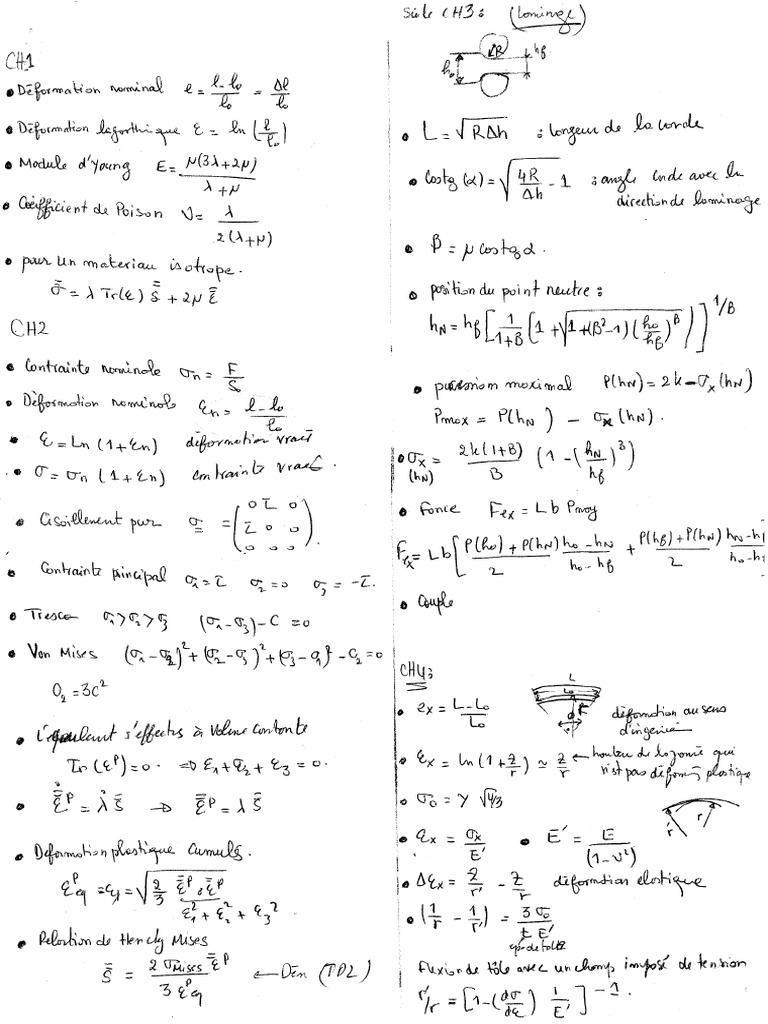 CH1
• Déformation nominal e = (l - l₀)/l₀ = Δl/l₀
• Déformation logorthique ε = ln (l/l₀)
• Module d'young E = μ(3λ+2μ)/(λ+μ)
• Coefficient de Poison ν = λ/(2(λ+μ))
• pour un materiau isotrope.
σ̿ = λ Tr(ε) δ̿ + 2μ ε̿
CH2
• Contrainte nominale σn = F/S₀
• Déformation nominale εn = (l - l₀)/l₀
• ε = Ln (1+εn) déformation vraie
• σ = σn (1+εn) contrainte vraie
• Cisaillement pur σ = (0 τ 0
τ 0 0
0 0 0).
• Contrainte principal σ₁ = τ σ₂ = 0 σ₃ = -τ.
• Tresca σ₁>σ₂>σ₃ (σ₁-σ₃) - C = 0
• Von Mises (σ₁-σ₂)² + (σ₂-σ₃)² + (σ₃-σ₁)² - C₂ = 0
O₂ = 3C²
• s'effectue à volume constante
Tr (εᴾ) = 0. ⇒ ε₁ + ε₂ + ε₃ = 0.
• ε̿̇ᴾ = λ̇ S̿ → ε̿ᴾ = λ S̿
• Deformation plastique cumulé.
εᴾeq = ε₁ = √(2/3 ε̿ᴾ : ε̿ᴾ)
ε₁² + ε₂² + ε₃²
• Relation de Hencky Mises
S̿ = (2 σMises ε̿ᴾ)/(3 εᴾeq) ← Dém (TD2)
Suite CH3 : (Laminage)
ΔR
h₀
hf
• L = √(RΔh) : longeur de la corde
• Cotg (α) = √(4R/Δh - 1) : angle corde avec la
direction de laminage
• β = μ cotg α.
• position du point neutre :
hN = hf [1/(1+β) (1 + √(1+(β²-1)(h₀/hf)^β))]^(1/β)
• pression maximal P(hN) = 2k - σx(hN)
Pmax = P(hN) - σx (hN).
• σx(hN) = 2k(1+β)/β (1 - (hN/hf)^β)
• Force Fex = L b Pmoy
Fex = Lb [(P(h₀) + P(hN))/2 (h₀ - hN)/(h₀ - hf) + (P(hf) + P(hN))/2 (hN - h
h₀ - h
• Couple
CH4 :
L
L₀
• ex = (L - L₀)/L₀
déformation au sens
d'ingenieur
• εx = ln (1 + z/r) ≃ z/r ← hauteur de la zone qui
n'est pas déformé plastique
• σ₀ = Y √(4/3)
r' r
• εx = σx/E' • E' = E/(1-ν²)
• Δεx = z/r' - z/r déformation elastique
• (1/r - 1/r') = 3 σ₀/(t E')
ep de tole
flexion de tôle avec un champ imposé de tension
r'/r = [1 - (dσ/dε) 1/E']⁻¹.